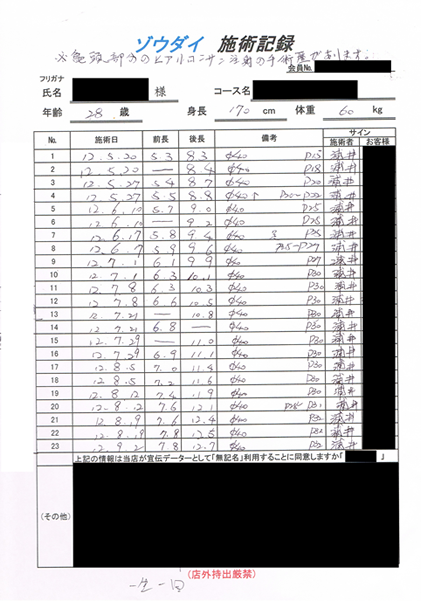 ゾウダイ 施術記録
※亀頭部分のヒアルロンサン注射の手術歴があります。
会員No.
フリガナ
氏名 様 コース名
年齢 28 歳 身長 170 cm 体重 60 kg
No. 施術日 前長 後長 備考 サイン
施術者 お客様
1 12.5.20 5.3 8.3 φ40 P15
2 12.5.20 — 8.4 φ40 P18
3 12.5.27 5.4 8.7 φ40 P20
4 12.5.27 5.5 8.8 φ40
5 12.6.10 5.7 9.0 φ40 P25
6 12.6.10 — 9.2 φ40 P25
7 12.6.17 5.8 9.4 φ40 P25
8 12.6.17 5.9 9.6 φ40 P25~P27
9 12.7.1 6.1 9.9 φ40 P27
10 12.7.1 6.3 10.1 φ40 P30
11 12.7.8 6.3 10.3 φ40 P30
12 12.7.8 6.6 10.5 φ40 P30
13 12.7.21 — 10.8 φ40 P30
14 12.7.21 6.8 — φ40 P30
15 12.7.29 — 11.0 φ40 P30
16 12.7.29 6.9 11.1 φ40 P30
17 12.8.5 7.0 11.4 φ40 P30
18 12.8.5 7.2 11.6 φ40 P30
19 12.8.12 7.4 11.9 φ40 P30
20 12.8.12 7.6 12.1 φ40 P31
21 12.8.19 7.6 12.4 φ40 P32
22 12.8.19 7.8 12.5 φ40 P32
23 12.9.2 7.8 12.7 φ40 P32
上記の情報は当店が宣伝データーとして「無記名」利用することに同意しますか「 」
(その他)
(店外持出厳禁)